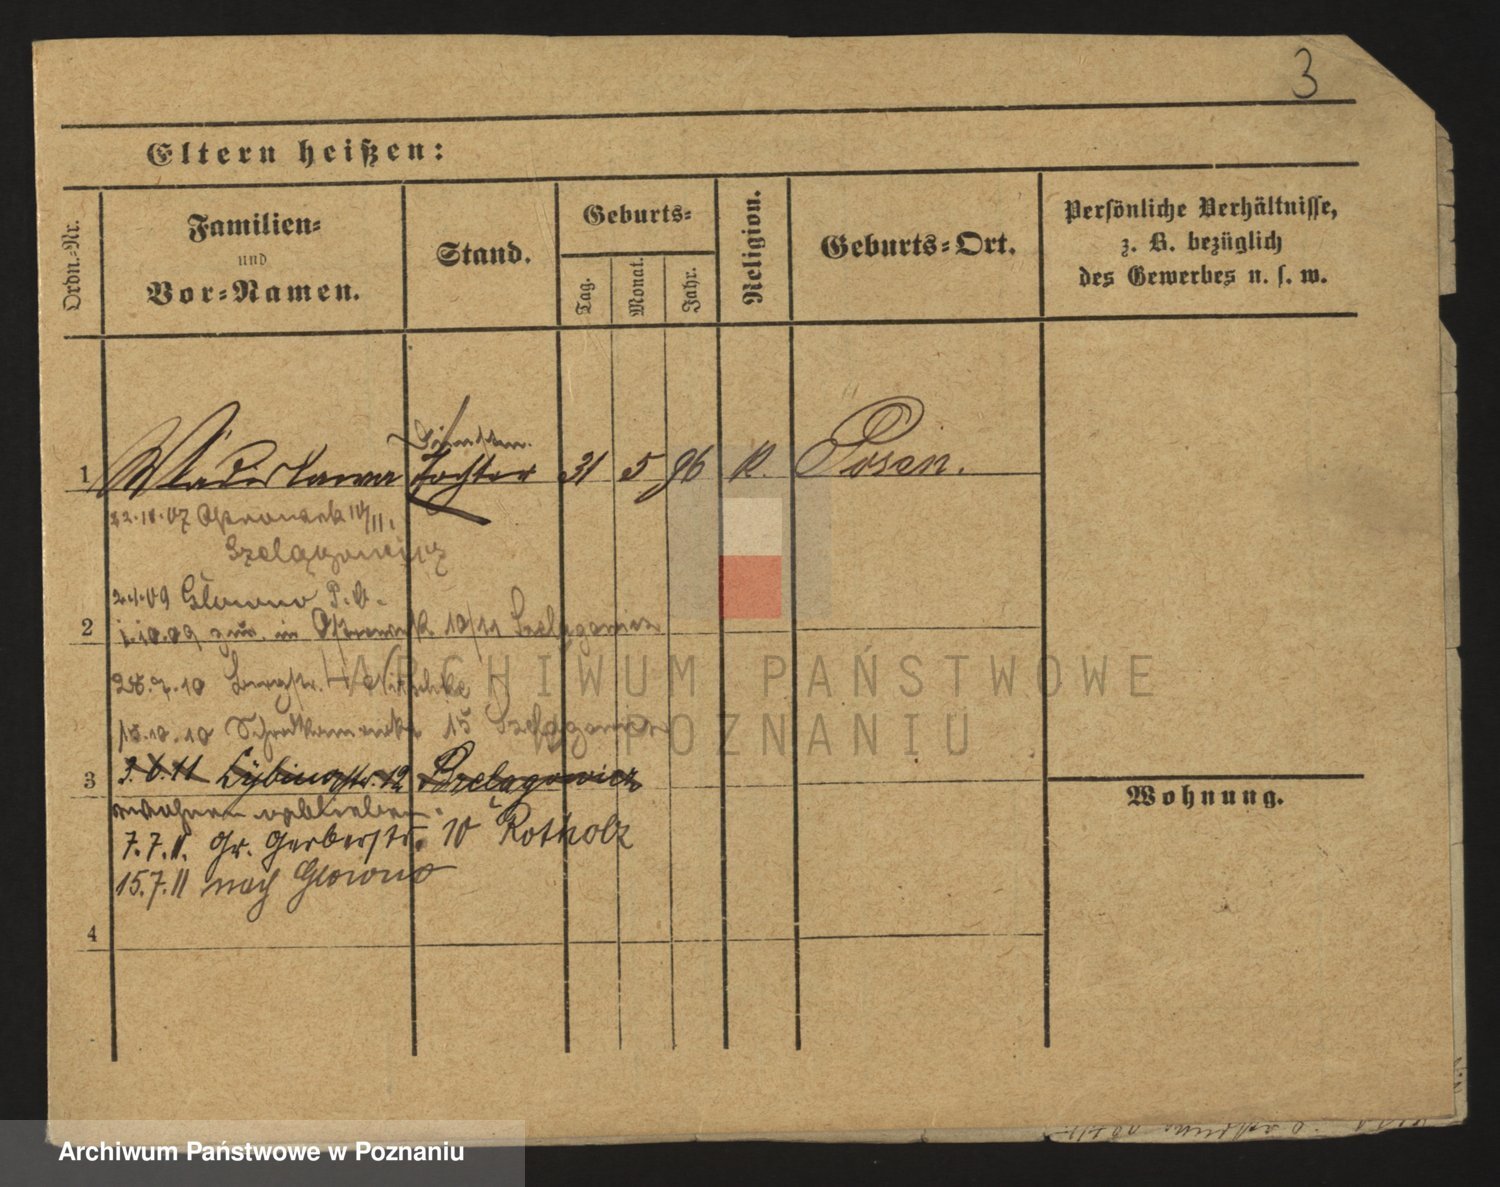 3
Eltern heißen:
Ordn.-Nr.
Familien-
und
Vor-Namen.
Stand.
Geburts-
Tag.
Monat.
Jahr.
Religion.
Geburts-Ort.
Persönliche Verhältnisse,
z. B. bezüglich
des Gewerbes u. s. w.
1 Wladislawa Tochter 31 5 96 K. Posen.
22.11.07 10/11.
Szelągowicz
2.1.09 Głowno P. O.
2 1.10.09 zur. in 10/11 Szelągowicz
28.7.10
15.10.10 15 Szelągowicz
3 3.6.11 12 Szelagowicz
7.7.11. Gr. Gerberstr. 10 Rotholz
15.7.11 nach Glowno
4
Wohnung.
ARCHIWUM PAŃSTWOWE
W POZNANIU
Archiwum Państwowe w Poznaniu